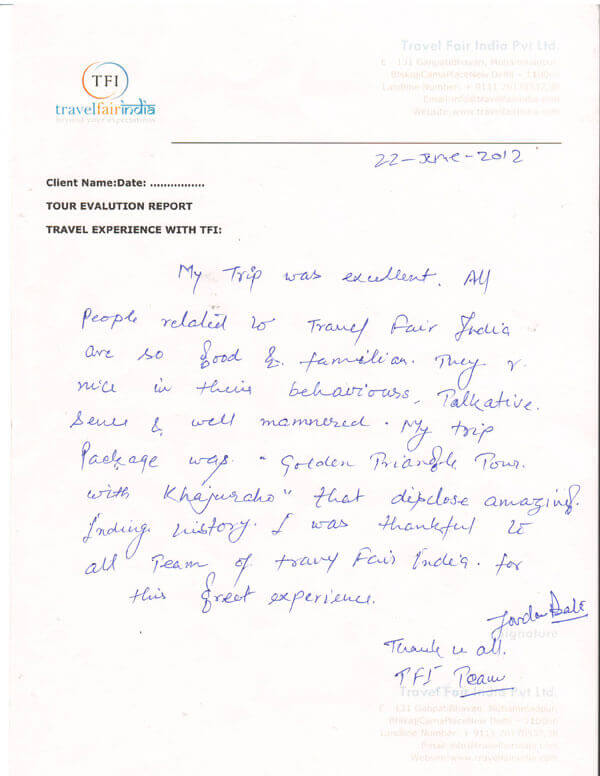 Travel Fair India Pvt Ltd.
E - 131 GanpatiBhavan, Mohammadpur,
BhikajiCamaPlaceNew Delhi - 110066
Landline Number. + 9111 26170537,38
Email:info@travelfairindia.com
Website:www.travelfairindia.com
TFI
travelfairindia
beyond your expectations
22-June-2012
Client Name:Date: ................
TOUR EVALUTION REPORT
TRAVEL EXPERIENCE WITH TFI:
My Trip was excellent. All
People related to Travel Fair India
are so good & familiar. They r
nice in their behaviours, Talkative.
& well mannered. My trip
Package was "Golden Triangle Tour
with Khajuraho" that disclose amazing
history. I was thankful to
all Team of Fair India. for
this great experience.
Jordan
Signature
Thank u all.
TFI Team
Travel Fair India Pvt Ltd.
E - 131 GanpatiBhavan, Mohammadpur,
BhikajiCamaPlaceNew Delhi - 110066
Landline Number. + 9111 26170537,38
Email:info@travelfairindia.com
Website:www.travelfairindia.com